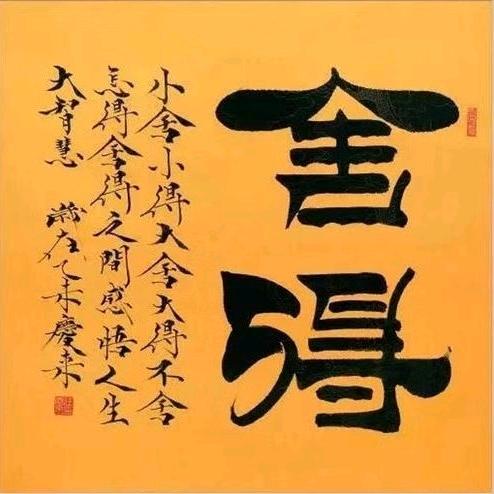 舍得
小舍小得大舍大得不舍
怎得舍得之间感悟人生
大智慧 岁在乙未庆来